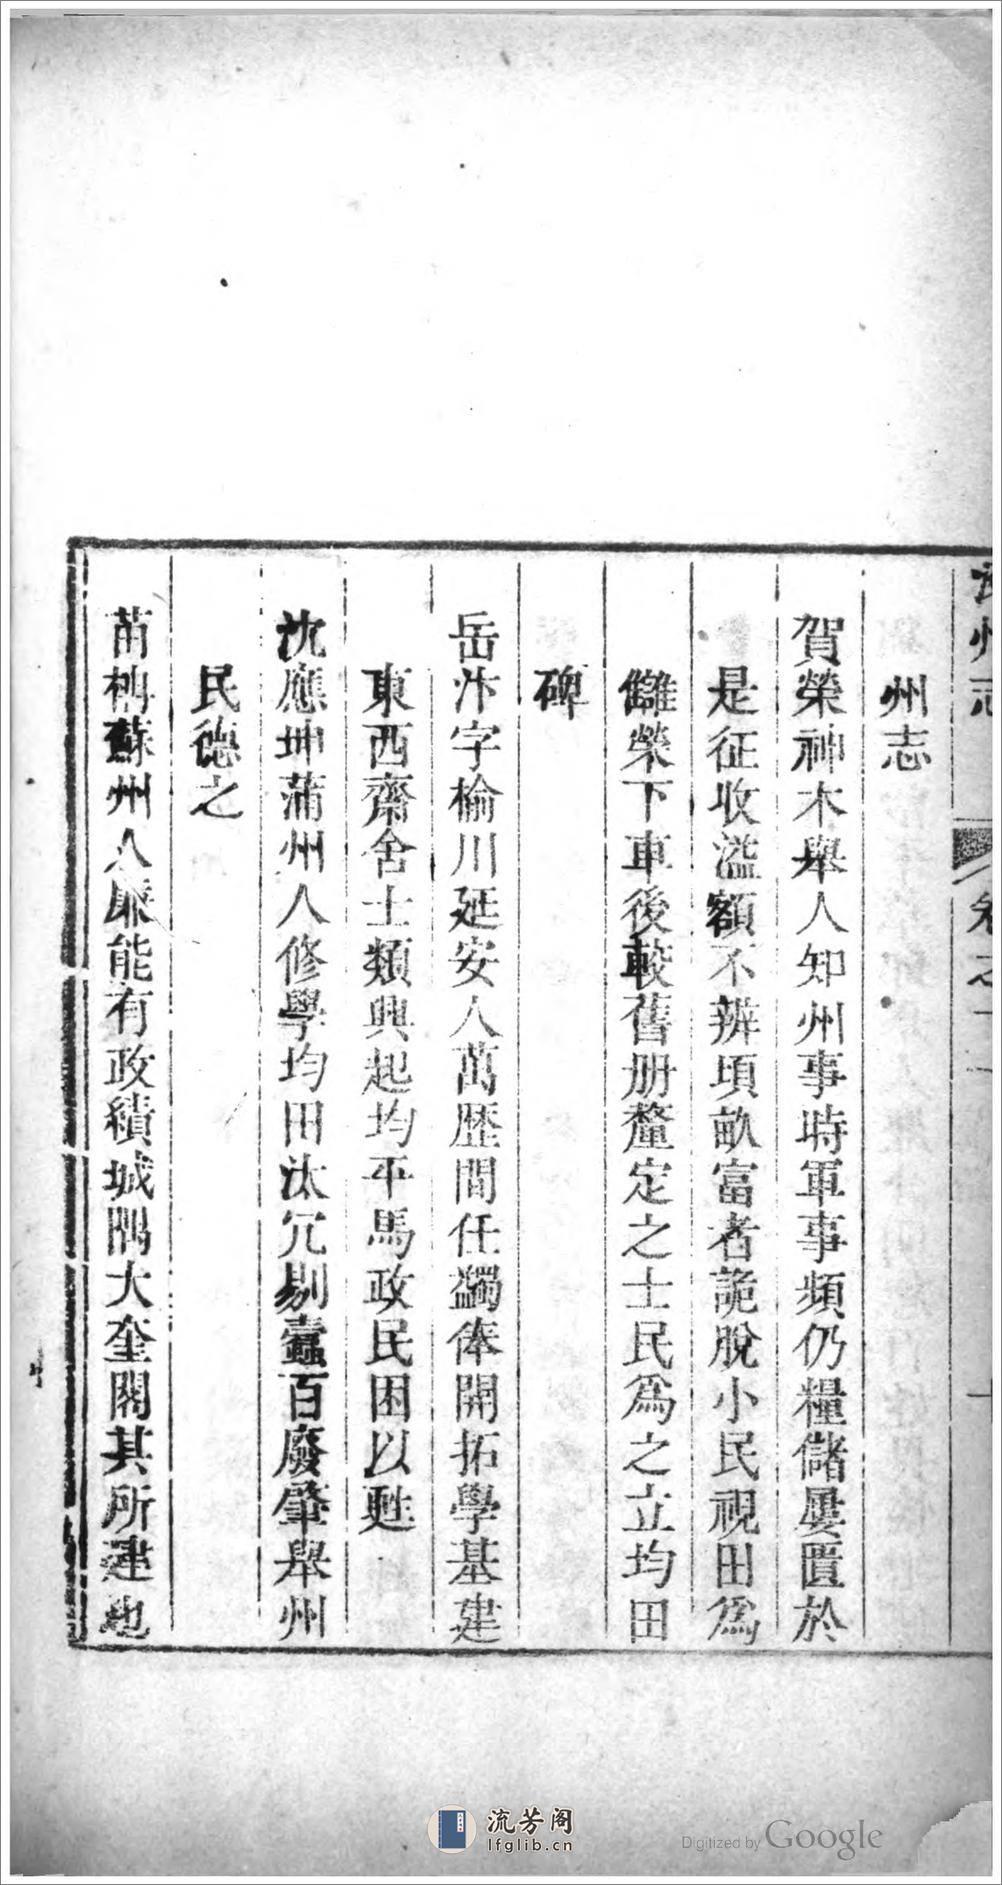 州志
卷之
州志
賀榮神木舉人知州事時軍事頻仍糧儲屢匱於
是征收溢額不辨頃畝富者詭脫小民視田爲
讎榮下車後較舊册釐定之士民爲之立均田
碑
岳汴字楡川延安人萬歷間任蠲俸開拓學基建
東西齋舍士類興起均平馬政民困以甦
沈應坤蒲州人修學均田汰冗剔蠹百廢肇舉州
民德之
苗 蘇州人廉能有政績城隅大奎閣其所建也
流芳阁
lfglib.cn
Digitized by Google